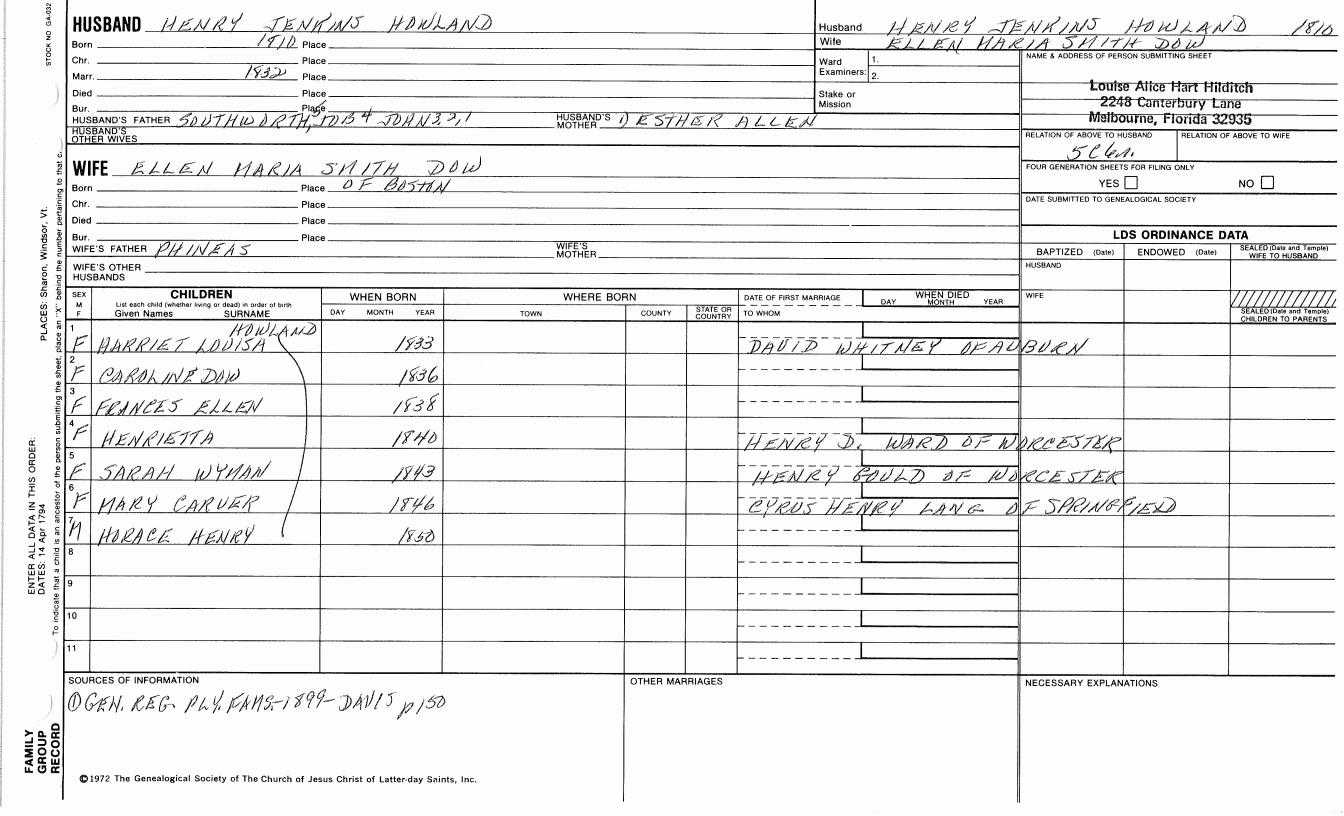 STOCK NO GA-032
HUSBAND HENRY JENKINS HOWLAND
Born 1810 Place
Chr. Place
Marr. 1832 Place
Died Place
Bur. Place
HUSBAND'S FATHER SOUTHWORTH, JOHN 3, 2, 1
HUSBAND'S MOTHER ESTHER ALLEN
HUSBAND'S OTHER WIVES
WIFE ELLEN MARIA SMITH DOW
Born Place OF BOSTON
Chr. Place
Died Place
Bur. Place
WIFE'S FATHER PHINEAS
WIFE'S MOTHER
WIFE'S OTHER HUSBANDS
Husband HENRY JENKINS HOWLAND 1810
Wife ELLEN MARIA SMITH DOW
Ward Examiners: 1.
2.
Stake or Mission
NAME & ADDRESS OF PERSON SUBMITTING SHEET
Louise Alice Hart Hilditch
2248 Canterbury Lane
Melbourne, Florida 32935
RELATION OF ABOVE TO HUSBAND RELATION OF ABOVE TO WIFE
FOUR GENERATION SHEETS FOR FILING ONLY
YES NO
DATE SUBMITTED TO GENEALOGICAL SOCIETY
LDS ORDINANCE DATA
BAPTIZED (Date) ENDOWED (Date) SEALED (Date and Temple) WIFE TO HUSBAND
HUSBAND
WIFE
SEALED (Date and Temple) CHILDREN TO PARENTS
SEX M F
CHILDREN
List each child (whether living or dead) in order of birth
Given Names SURNAME
WHEN BORN
DAY MONTH YEAR
WHERE BORN
TOWN COUNTY STATE OR COUNTRY
DATE OF FIRST MARRIAGE
TO WHOM
WHEN DIED
DAY MONTH YEAR
HOWLAND
1 F HARRIET LOUISA 1833 DAVID WHITNEY OF AUBURN
2 F CAROLINE DOW 1836
3 F FRANCES ELLEN 1838
4 F HENRIETTA 1840 HENRY D. WARD OF WORCESTER
5 F SARAH WYMAN 1843 HENRY GOULD OF WORCESTER
6 F MARY CARVER 1846 CYRUS HENRY LANG OF SPRINGFIELD
7 M HORACE HENRY 1850
8
9
10
11
SOURCES OF INFORMATION
① GEN. REG. PLY. FAMS.-1899- DAVIS p150
OTHER MARRIAGES
NECESSARY EXPLANATIONS
©1972 The Genealogical Society of The Church of Jesus Christ of Latter-day Saints, Inc.
FAMILY GROUP RECORD
ENTER ALL DATA IN THIS ORDER:
DATES: 14 Apr 1794
PLACES: Sharon, Windsor, Vt.
To indicate that a child is an ancestor of the person submitting the sheet, place an "X" behind the number pertaining to that c